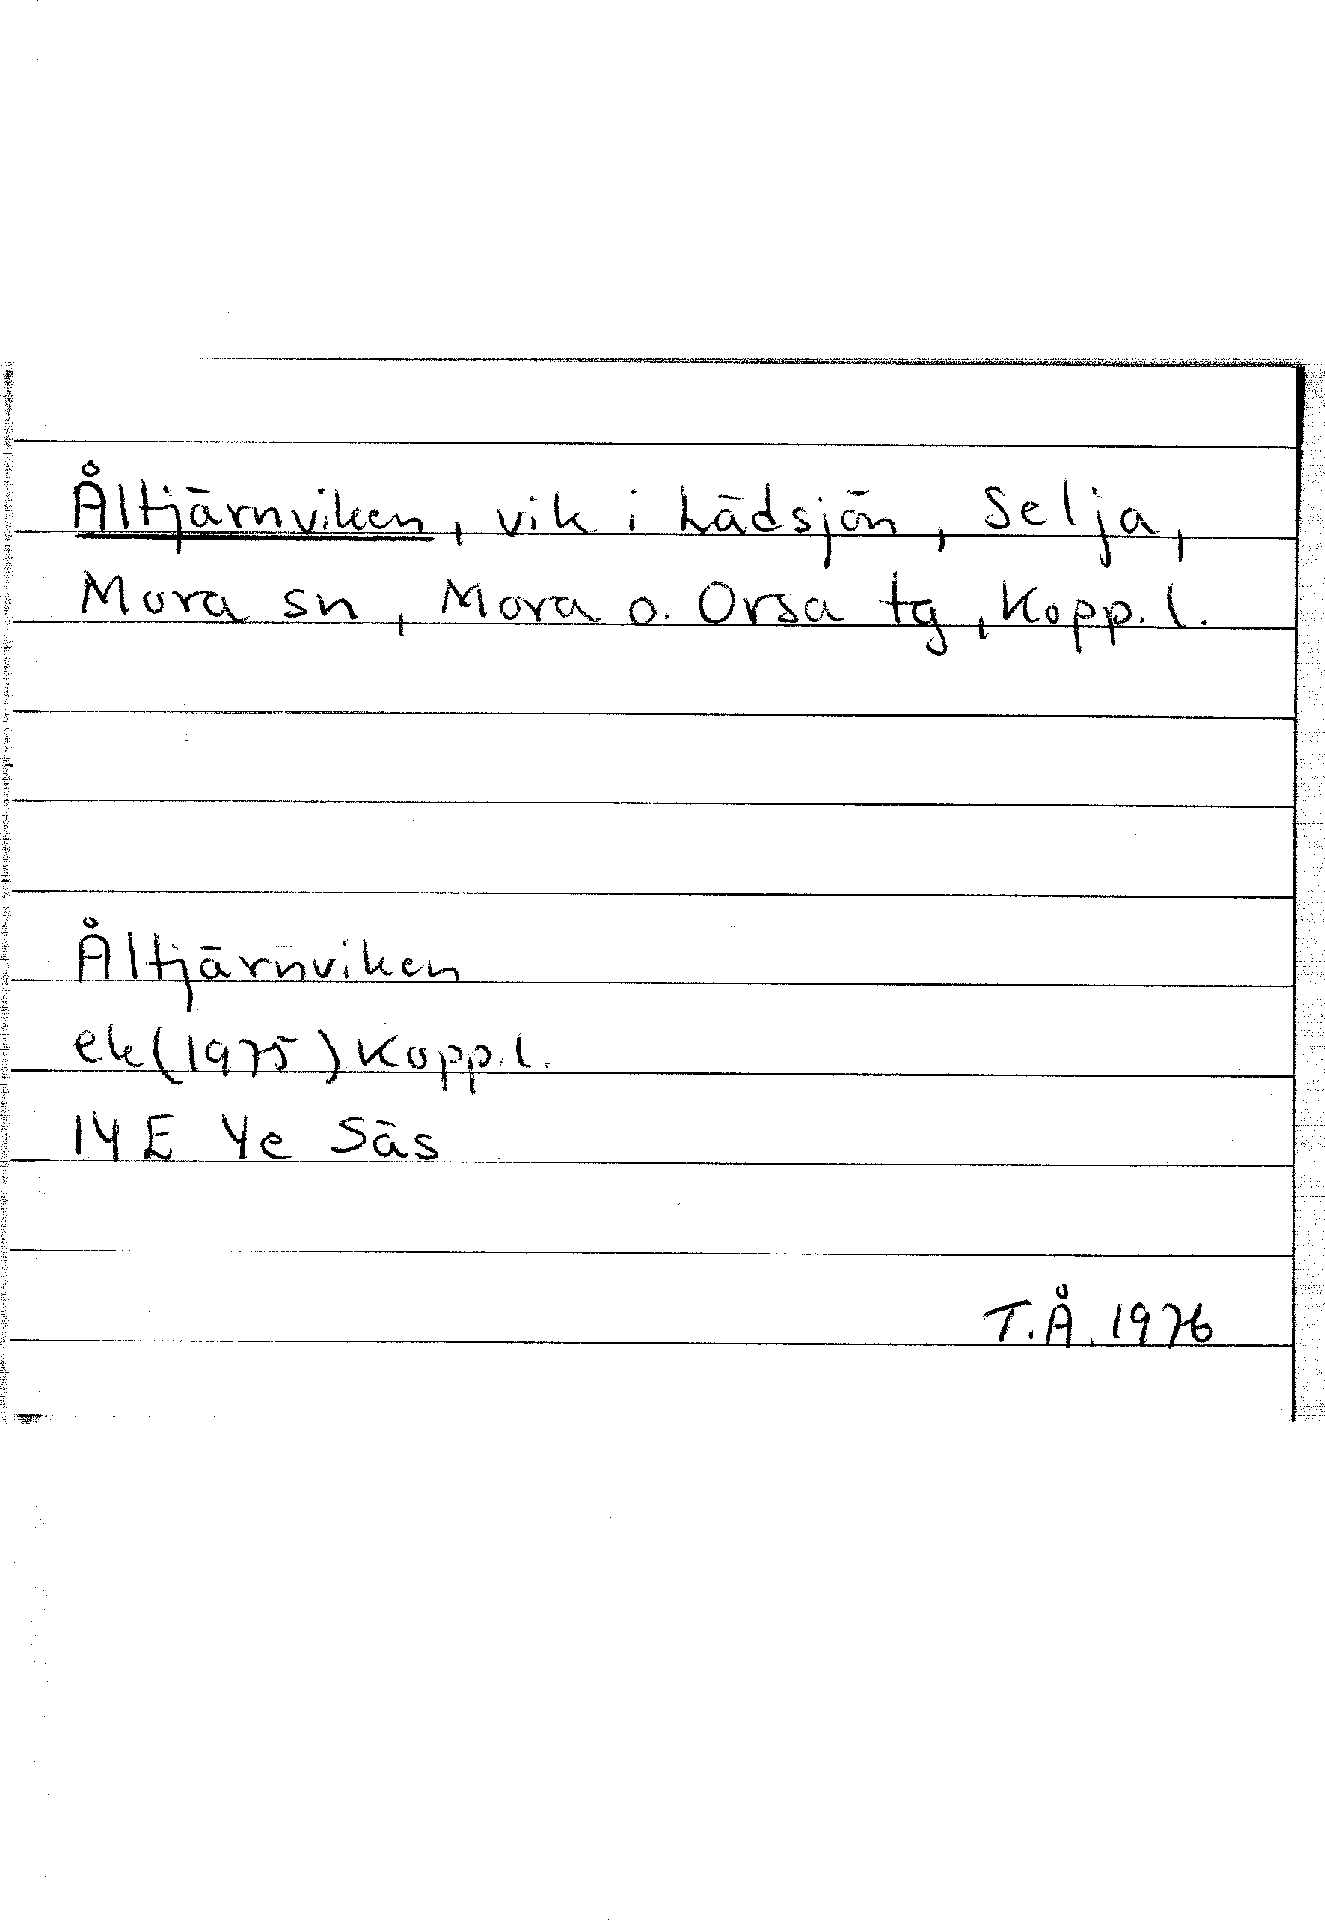 Åltjärnviken, vik i Lädsjön, Selja,
Mora sn, Mora o. Orsa tg, Kopp. l.
Åltjärnviken
ek(1975) Kopp. l.
14 E 4e Säs
T.Å. 1976